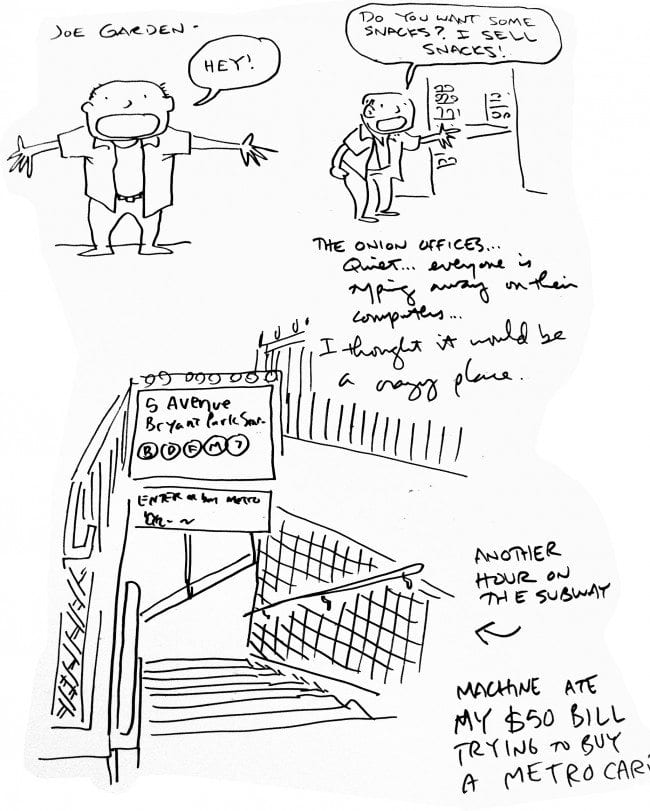 JOE GARDEN-
HEY!
DO YOU WANT SOME
SNACKS? I SELL
SNACKS!
THE ONION OFFICES...
Quiet... everyone is
typing away on their
computers...
I thought it would be
a crazy place.
5 Avenue
Bryant Park
B D F M 7
ENTER or buy METRO
ANOTHER
HOUR ON
THE SUBWAY
MACHINE ATE
MY $50 BILL
TRYING TO BUY
A METROCAR